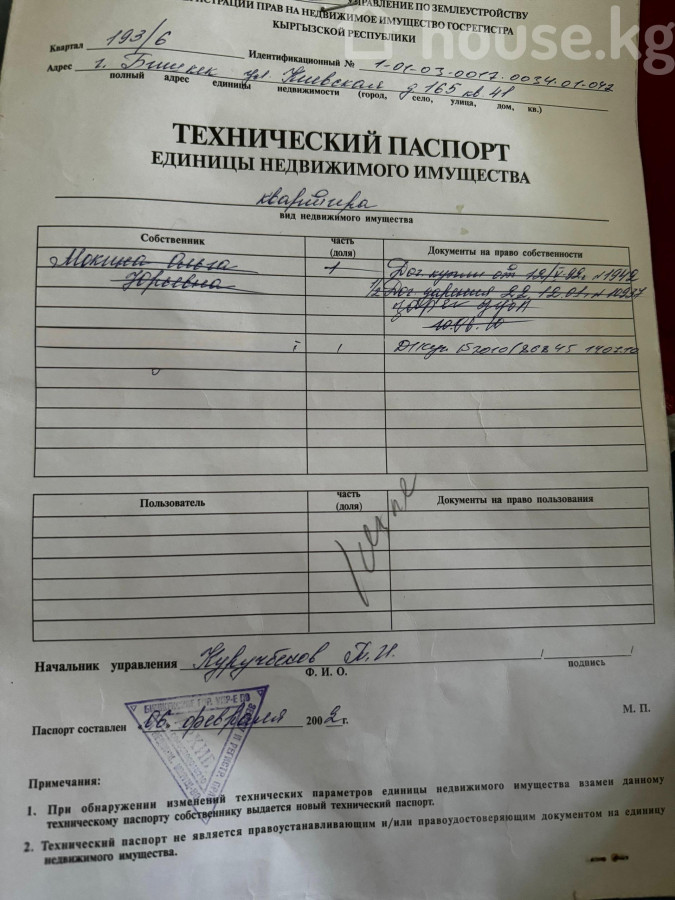 УПРАВЛЕНИЕ ПО ЗЕМЛЕУСТРОЙСТВУ
РЕГИСТРАЦИИ ПРАВ НА НЕДВИЖИМОЕ ИМУЩЕСТВО ГОСРЕГИСТРА
КЫРГЫЗСКОЙ РЕСПУБЛИКИ
house.kg
Квартал 193/6 Идентификационный № 1-01-03-0017-0034-01-042
Адрес г. Бишкек ул Киевская д 165 кв 41
полный адрес единицы недвижимости (город, село, улица, дом, кв.)
ТЕХНИЧЕСКИЙ ПАСПОРТ
ЕДИНИЦЫ НЕДВИЖИМОГО ИМУЩЕСТВА
квартира
вид недвижимого имущества
Собственник часть (доля) Документы на право собственности
Мокина Ольга 1 Дог купли от 12/V-92г. №1942
Юрьевна 1/2 Дог дарения 22.12.01. №
10.06.10
1
Пользователь часть (доля) Документы на право пользования
Начальник управления
Ф. И. О. подпись
Паспорт составлен 06. февраля 2002 г.
М. П.
Примечания:
1. При обнаружении изменений технических параметров единицы недвижимого имущества взамен данному
техническому паспорту собственнику выдается новый технический паспорт.
2. Технический паспорт не является правоустанавливающим и/или правоудостоверяющим документом на единицу
недвижимого имущества.